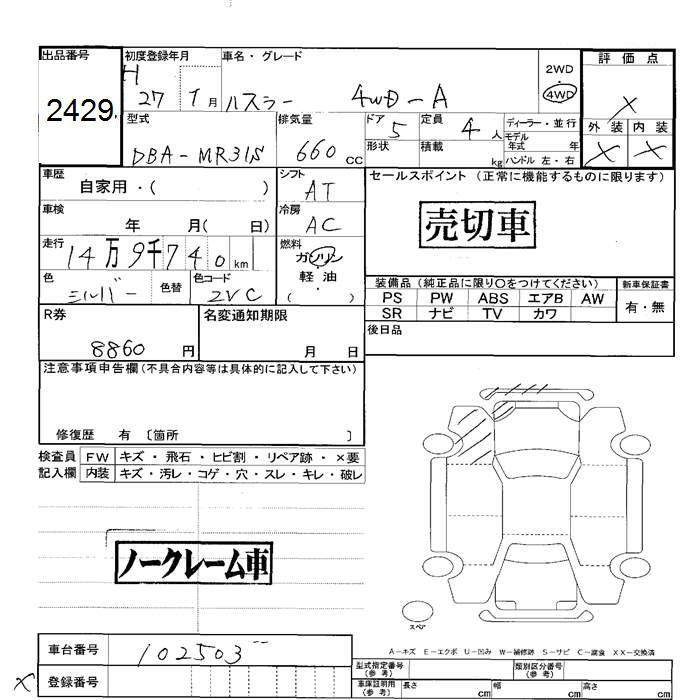 出品番号 2429
初度登録年月 H 27 1月
車名・グレード ハスラー 4WD-A
2WD
4WD
評価点
×
外装 × 内装 ×
型式 DBA-MR31S
排気量 660cc
ドア 5
形状
定員 4人
積載 kg
ディーラー・並行
モデル
年式 年
ハンドル 左・右
車歴 自家用・( )
シフト AT
セールスポイント (正常に機能するものに限ります)
売切車
車検 年 月( 日)
冷房 AC
走行 14万9千740km
燃料 ガソリン
軽油
( ・ )
色 シルバー 色替
色コード Z2VC
装備品 (純正品に限り〇をつけてください)
新車保証書
PS PW ABS エアB AW
有・無
SR ナビ TV カワ
R券 8860円
名変通知期限 月 日
後日品
注意事項申告欄 (不具合内容等は具体的に記入して下さい)
修復歴 有 〔箇所 〕
検査員 FW キズ・飛石・ヒビ割・リペア跡・×要
記入欄 内装 キズ・汚レ・コゲ・穴・スレ・キレ・破レ
ノークレーム車
スペア
A―キズ E―エクボ U―凹み W―補修跡 S―サビ C―腐食 XX―交換済
車台番号 102503
型式指定番号 (参考)
類別区分番号 (参考)
× 登録番号
車庫証明用 (参考) 長さ cm 幅 cm 高さ cm